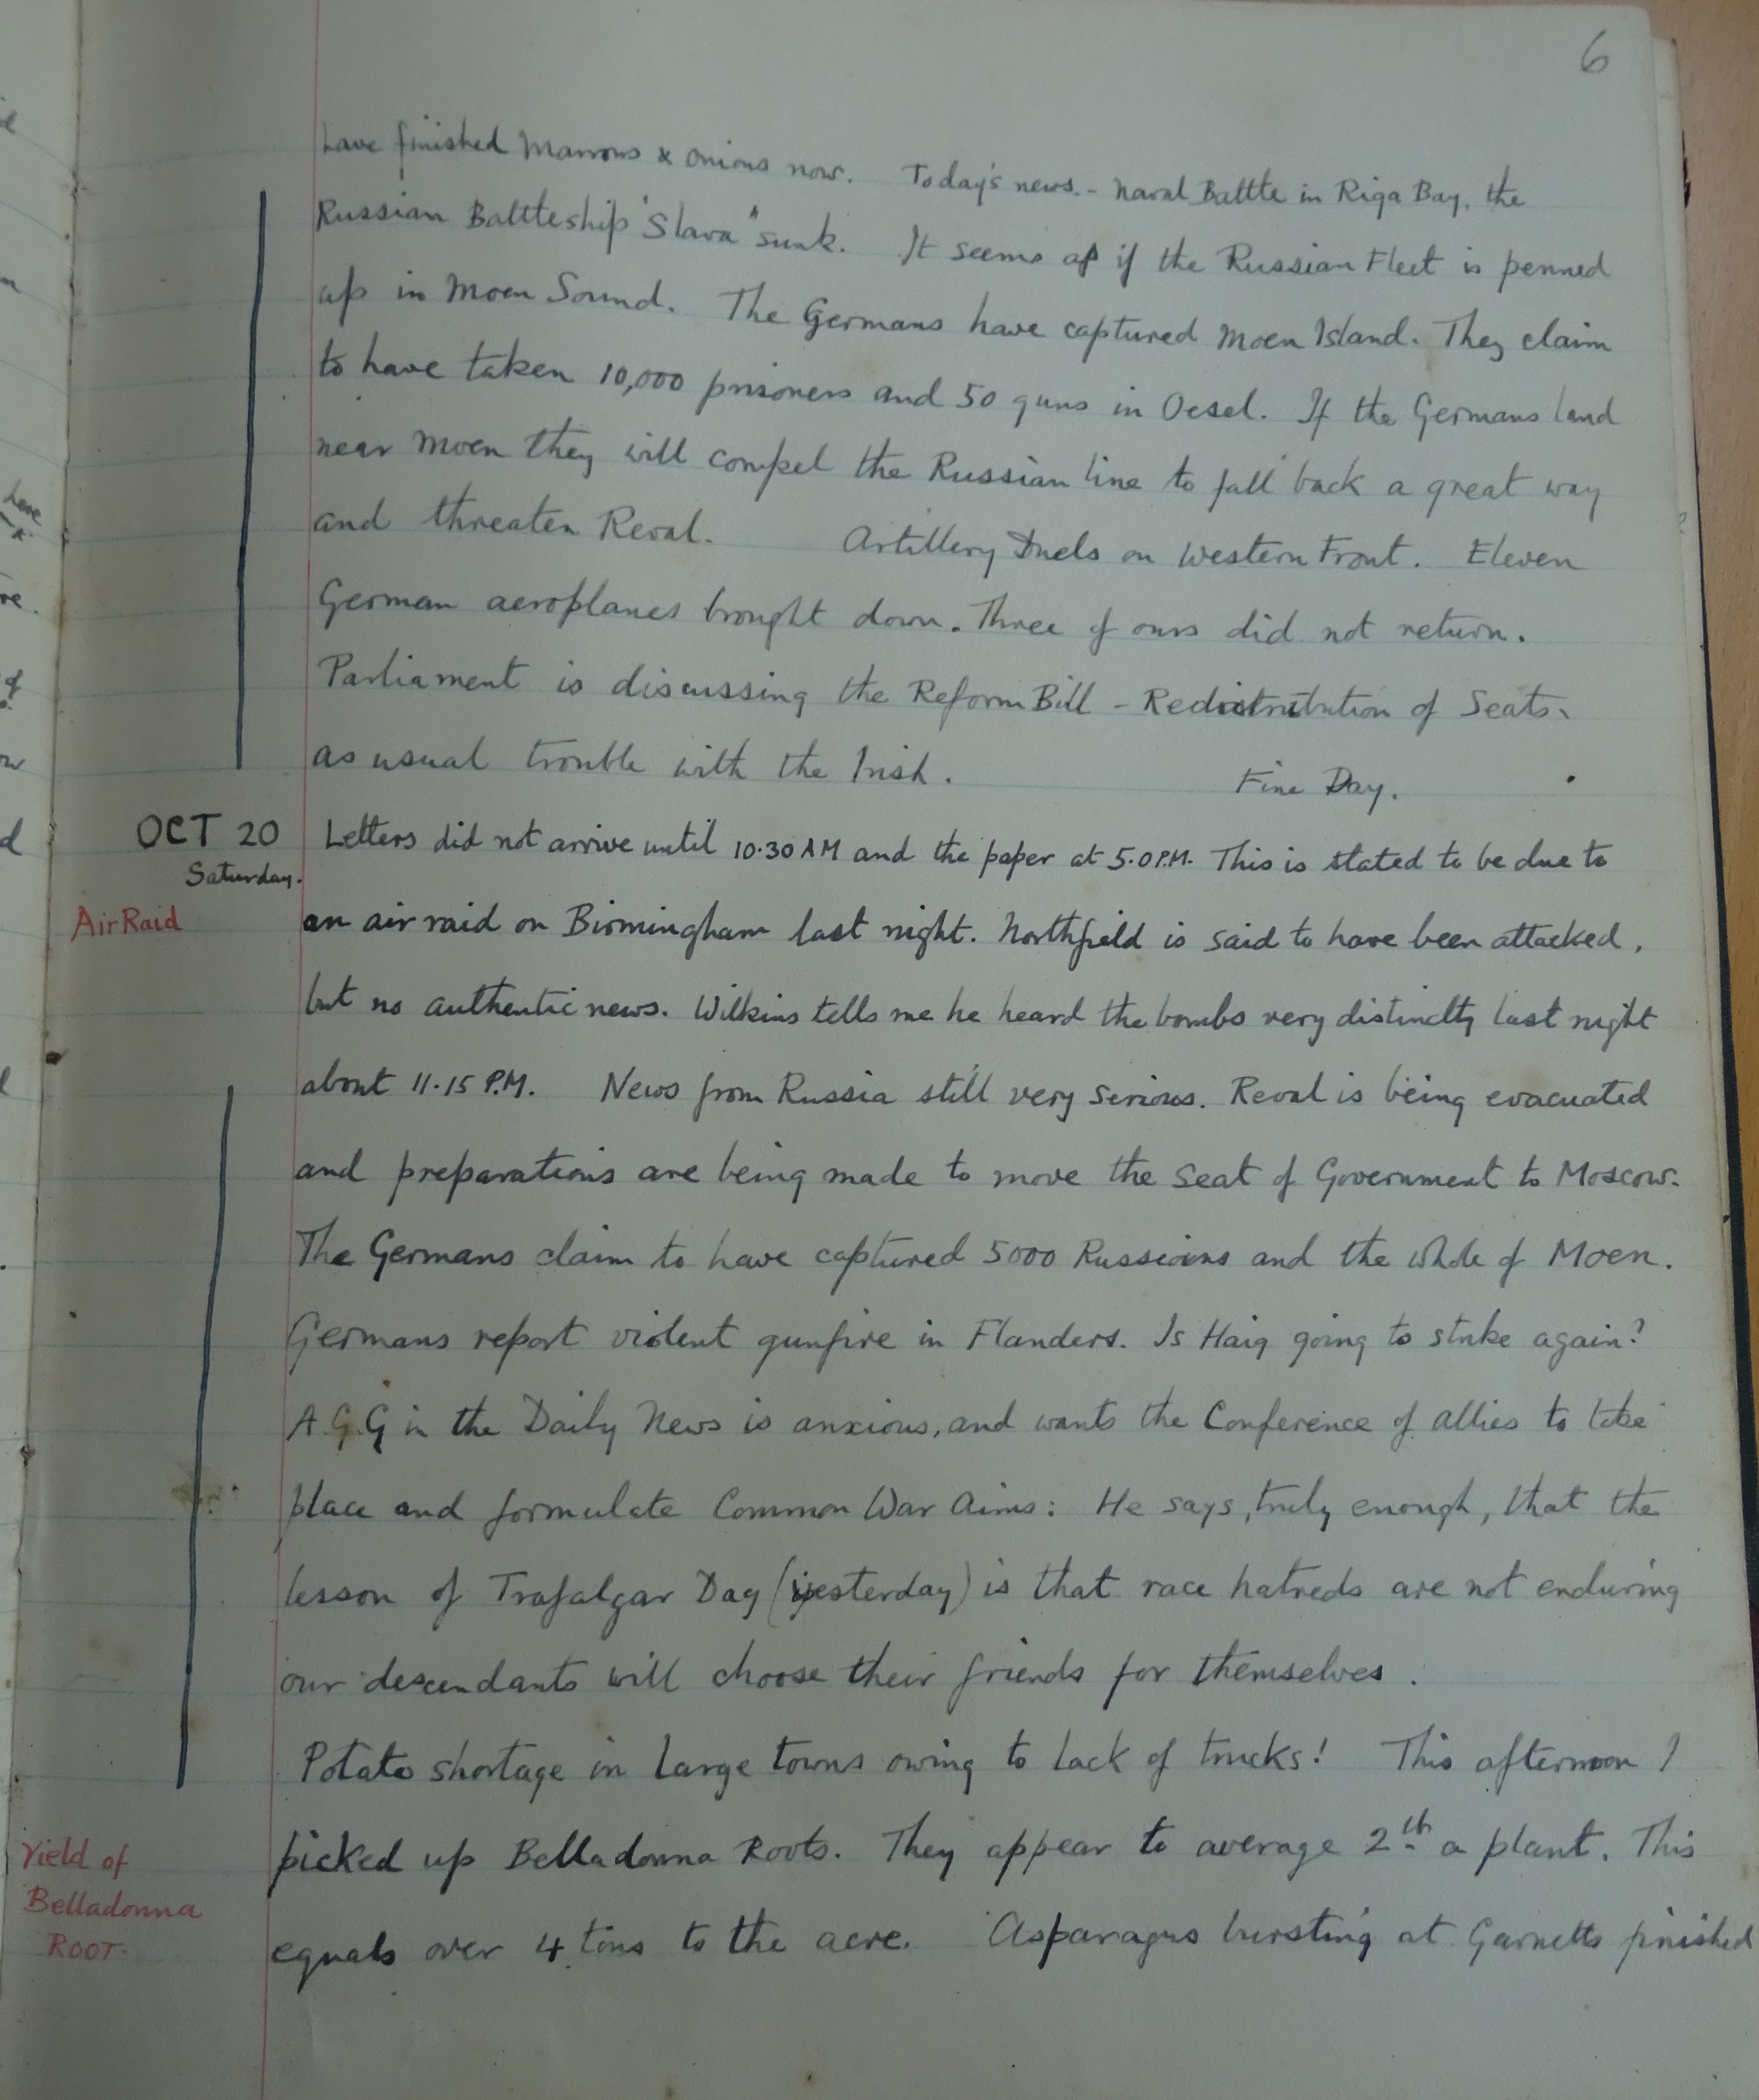 6
have finished Marrows & Onions now. Today's news. - Naval Battle in Riga Bay, the
Russian Battleship "Slava" sunk. It seems as if the Russian Fleet is penned
up in Moen Sound. The Germans have captured Moen Island. They claim
to have taken 10,000 prisoners and 50 guns in Oesel. If the Germans land
near Moen they will compel the Russian line to fall back a great way
and threaten Reval. Artillery Duels on Western Front. Eleven
German aeroplanes brought down. Three of ours did not return.
Parliament is discussing the Reform Bill - Redistribution of Seats.
as usual trouble with the Irish. Fine Day.
OCT 20 Letters did not arrive until 10.30 AM and the paper at 5.0 P.M. This is stated to be due to
Saturday.
Air Raid an air raid on Birmingham last night. Northfield is said to have been attacked,
but no authentic news. Wilkins tells me he heard the bombs very distinctly last night
about 11.15 P.M. News from Russia still very serious. Reval is being evacuated
and preparations are being made to move the Seat of Government to Moscow.
The Germans claim to have captured 5000 Russians and the whole of Moen.
Germans report violent gunfire in Flanders. Is Haig going to strike again?
A.G.G in the Daily News is anxious, and wants the Conference of Allies to take
place and formulate Common War Aims: He says, truly enough, that the
lesson of Trafalgar Day (yesterday) is that race hatreds are not enduring
our descendants will choose their friends for themselves.
Potato shortage in large towns owing to lack of trucks! This afternoon I
Yield of
Belladonna
ROOT.
picked up Belladonna Roots. They appear to average 2 lb a plant. This
equals over 4 tons to the acre. Asparagus bursting at Garnetts finished